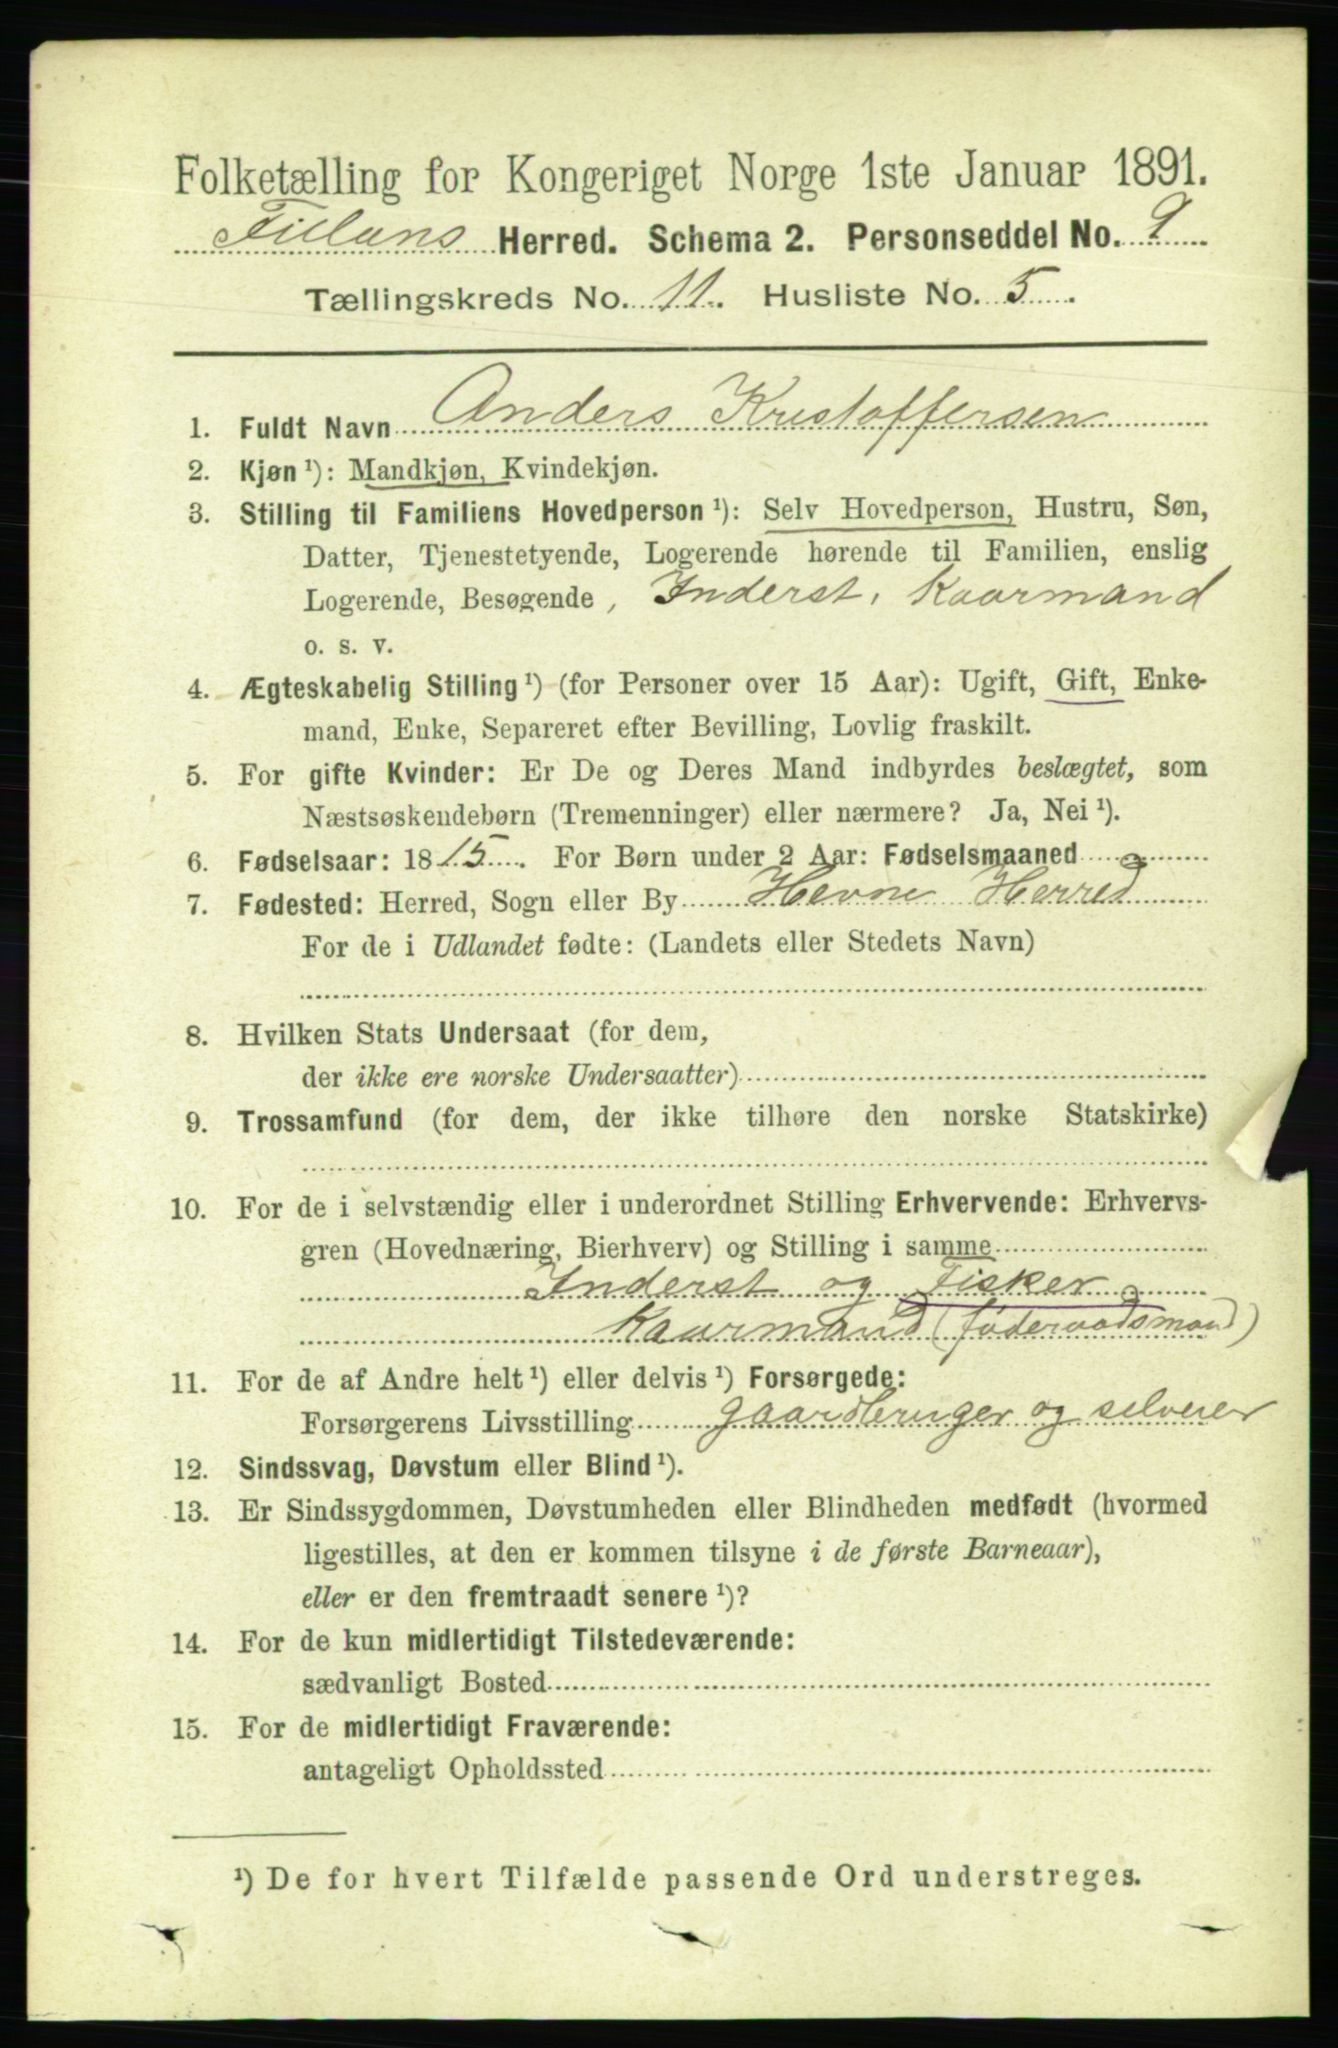 Folketælling for Kongeriget Norge 1ste Januar 1891.
Fillans Herred. Schema 2. Personseddel No. 9
Tællingskreds No. 11. Husliste No. 5
1. Fuldt Navn Anders Kristoffersen
2. Kjøn ¹): Mandkjøn, Kvindekjøn.
3. Stilling til Familiens Hovedperson ¹): Selv Hovedperson, Hustru, Søn,
Datter, Tjenestetyende, Logerende hørende til Familien, enslig
Logerende, Besøgende, Inderst, Kaarmand
o. s. v.
4. Ægteskabelig Stilling ¹) (for Personer over 15 Aar): Ugift, Gift, Enke-
mand, Enke, Separeret efter Bevilling, Lovlig fraskilt.
5. For gifte Kvinder: Er De og Deres Mand indbyrdes beslægtet, som
Næstsøskendebørn (Tremenninger) eller nærmere? Ja, Nei ¹).
6. Fødselsaar: 1815. For Børn under 2 Aar: Fødselsmaaned
7. Fødested: Herred, Sogn eller By Hevne Herred
For de i Udlandet fødte: (Landets eller Stedets Navn)
8. Hvilken Stats Undersaat (for dem,
der ikke ere norske Undersaatter)
9. Trossamfund (for dem, der ikke tilhøre den norske Statskirke)
10. For de i selvstændig eller i underordnet Stilling Erhvervende: Erhvervs-
gren (Hovednæring, Bierhverv) og Stilling i samme
Inderst og Fisker
Kaarmand (føderaadsmand)
11. For de af Andre helt ¹) eller delvis ¹) Forsørgede:
Forsørgerens Livsstilling gaardbruger og selveier
12. Sindssvag, Døvstum eller Blind ¹).
13. Er Sindssygdommen, Døvstumheden eller Blindheden medfødt (hvormed
ligestilles, at den er kommen tilsyne i de første Barneaar),
eller er den fremtraadt senere ¹)?
14. For de kun midlertidigt Tilstedeværende:
sædvanligt Bosted
15. For de midlertidigt Fraværende:
antageligt Opholdssted
¹) De for hvert Tilfælde passende Ord understreges.